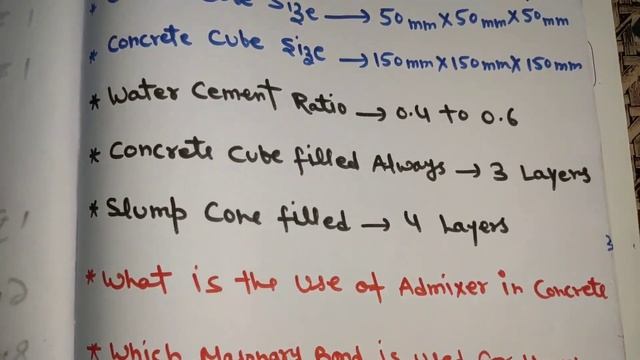 Size → 50mm X 50mm X 50mm
* Concrete Cube Size → 150mm X 150mm X 150mm
* Water Cement Ratio → 0.4 to 0.6
* Concrete Cube filled Always → 3 Layers
* Slump Cone filled → 4 Layers
* What is the Use of Admixer in Concrete
* Which Masonary Bond is Used